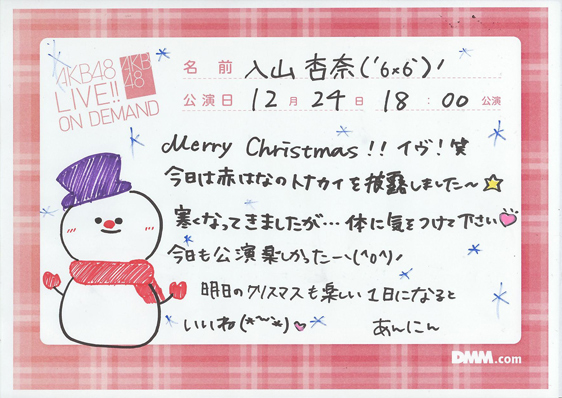 AKB48
LIVE!!
ON DEMAND
AKB
48
名前 入山杏奈('6×6')ノ
公演日 12月24日 18:00公演
Merry Christmas!! イヴ!笑
今日は赤はなのトナカイを披露しました〜☆
寒くなってきましたが…体に気をつけて下さい♡
今日も公演楽しかったー、(^o^)ノ
明日のクリスマスも楽しい1日になると
いいね(*~~*)♡ あんにん
DMM.com